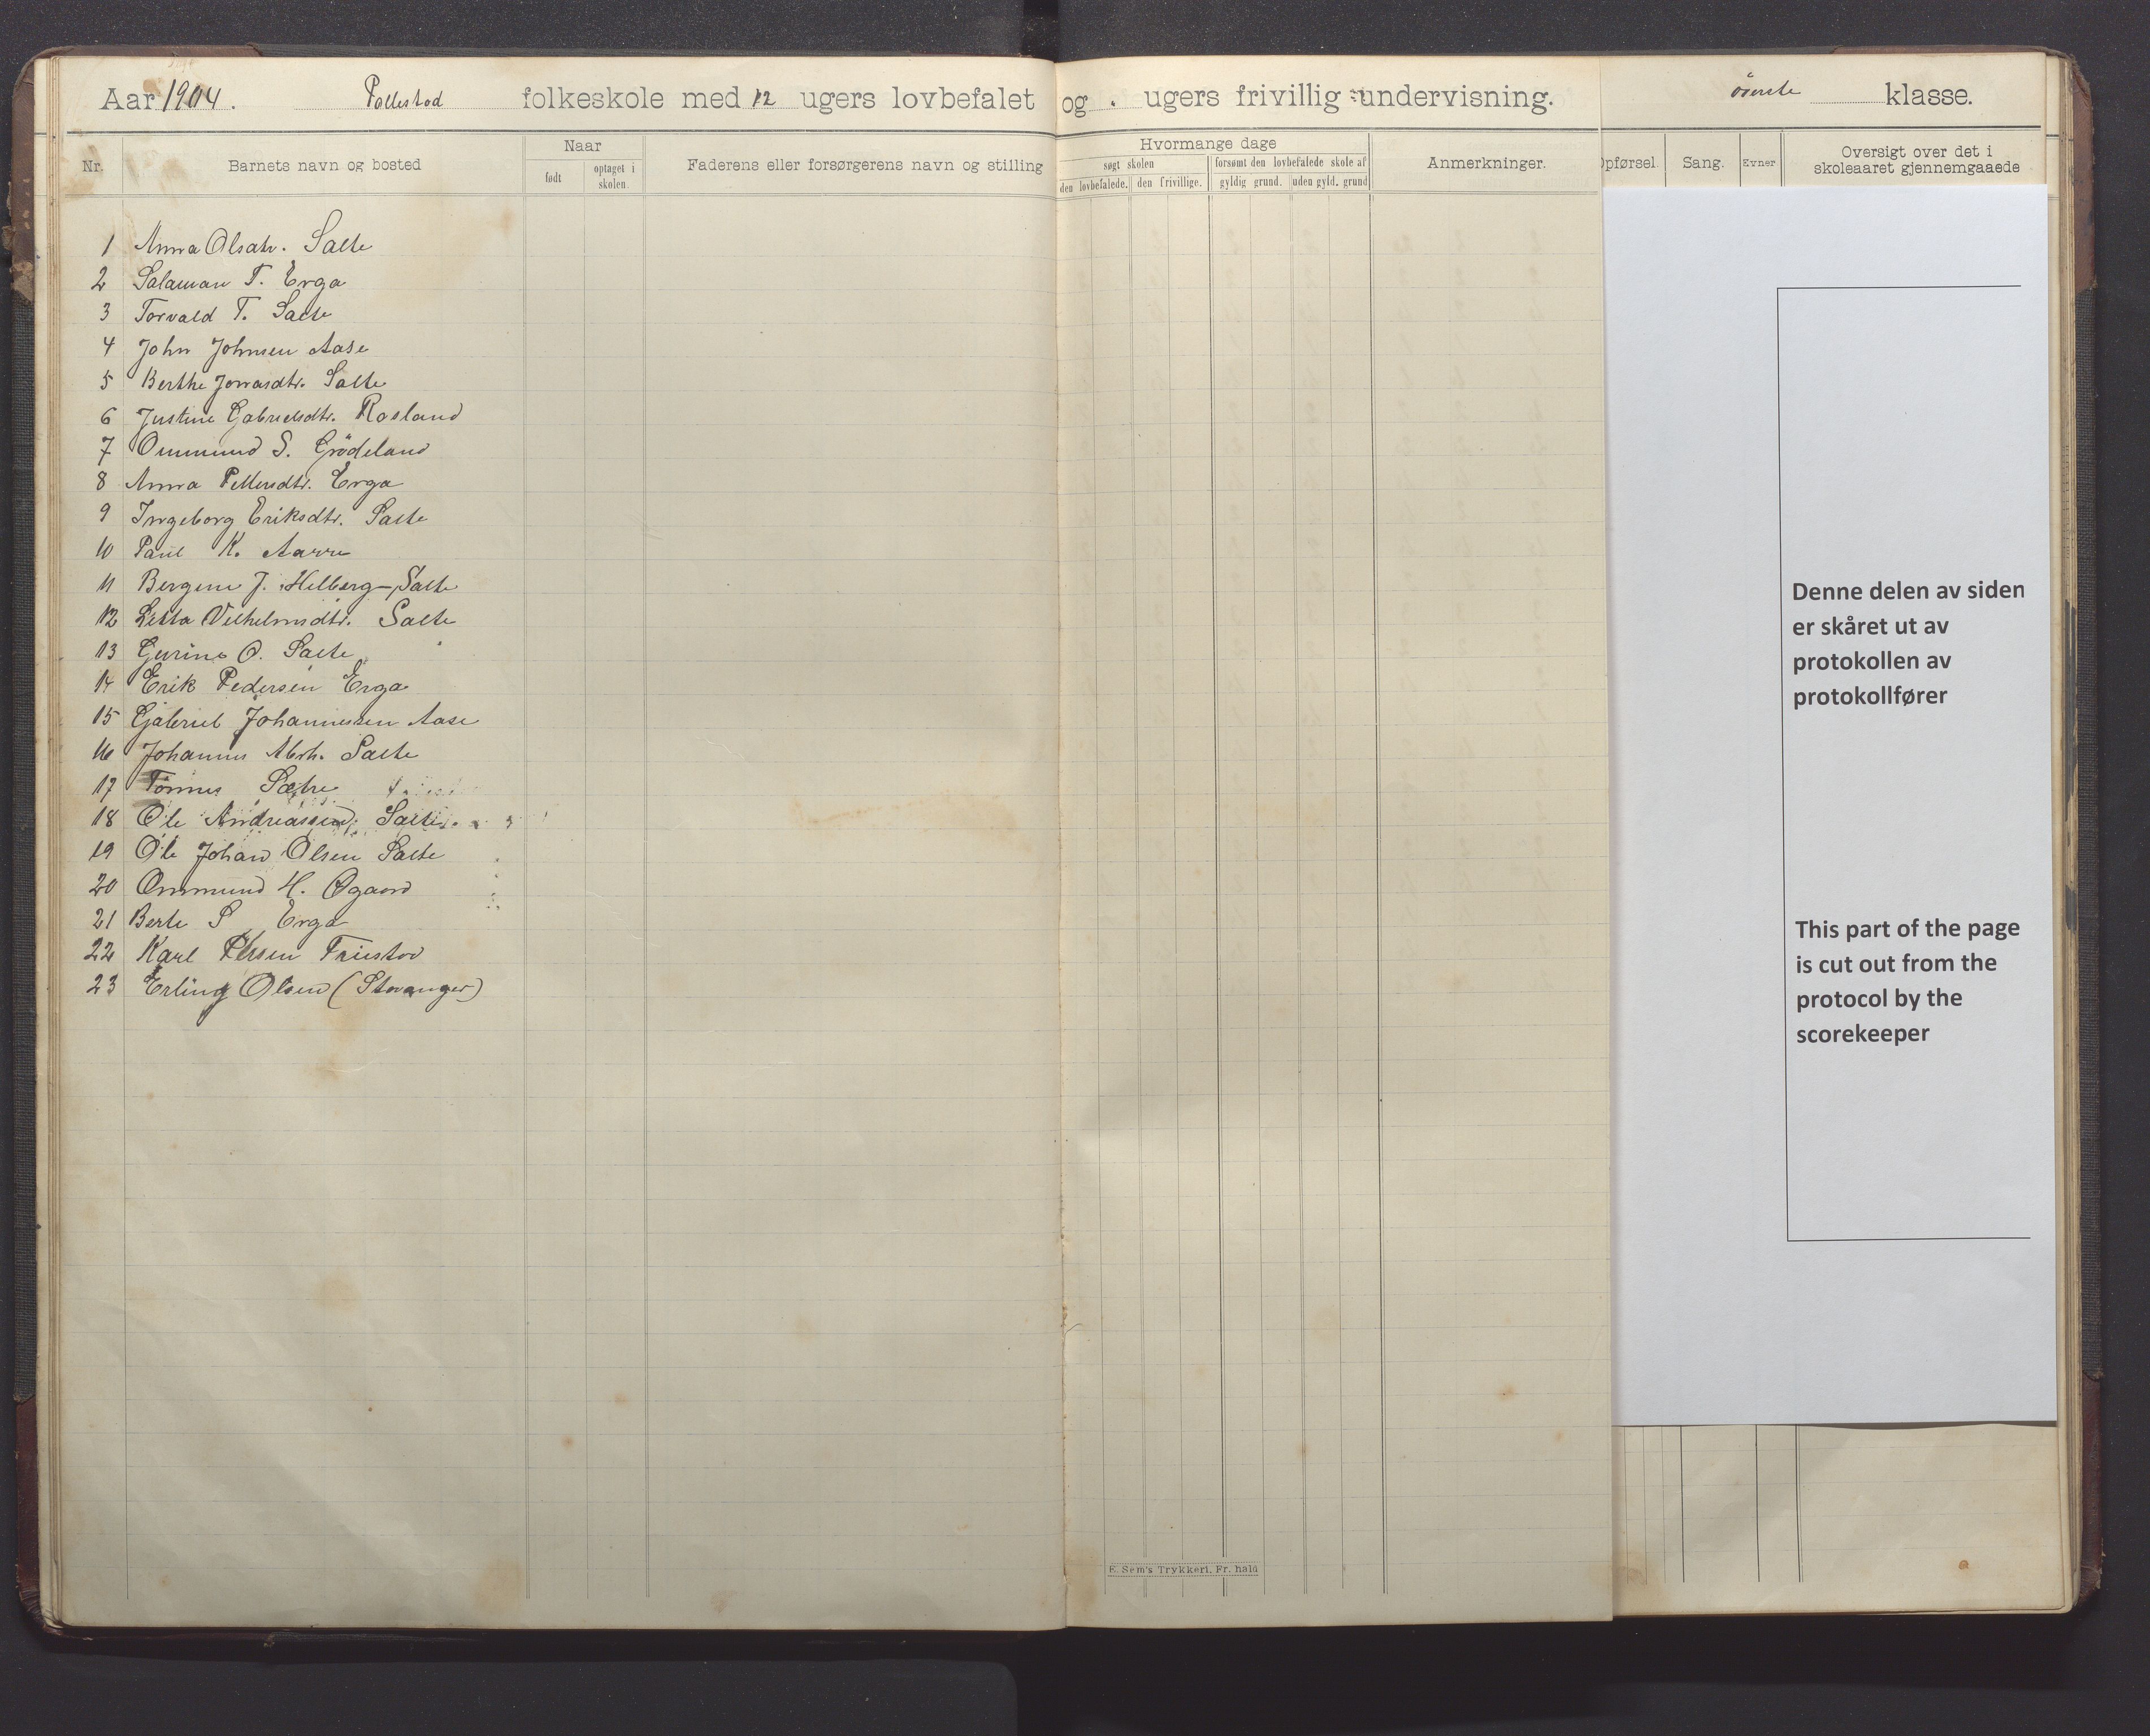 Aar 1904. Pollestad folkeskole med 12 ugers lovbefalet og . ugers frivillig undervisning. øverste klasse.
Nr.
Barnets navn og bosted
Naar
født
optaget i skolen.
Faderens eller forsørgerens navn og stilling
Hvormange dage
søgt skolen
forsømt den lovbefalede skole af
den lovbefalede. den frivillige. gyldig grund. uden gyld. grund
Anmerkninger.
Opførsel. Sang. Evner
Oversigt over det i
skoleaaret gjennemgaaede
1 Anna Olsdtr. Salte
2 Salaman T. Erga
3 Torvald T. Salte
4 John Johnsen Aase
5 Berthe Jonasdtr. Salte
6 Justine Gabrielsdtr. Rosland
7 Ommund S. Grödeland
8 Anna Pettersdtr. Erga
9 Ingeborg Eriksdtr. Salte
10 Paul K. Aarre
11 Bergine J. Helberg-Salte
12 Letta Vilhelmsdtr. Salte
13 Gurine O. Salte
14 Erik Pedersen Erga
15 Gabriel Johannessen Aase
16 Johannes Abrh. Salte
17 Tönnes Sætre
18 Ole Andreassen Salte
19 Ole Johan Olsen Salte
20 Ommund H. Øgaard
21 Berte S Erga
22 Karl Friestad
23 Erling Olsen (Stavanger)
Denne delen av siden
er skåret ut av
protokollen av
protokollfører
This part of the page
is cut out from the
protocol by the
scorekeeper
E. Sem's Trykkeri, Fr. hald